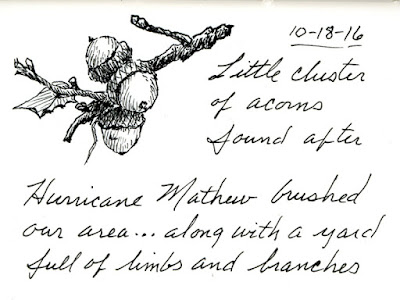 10-18-16
Little cluster
of acorns
found after
Hurricane Mathew brushed
our area... along with a yard
full of limbs and branches